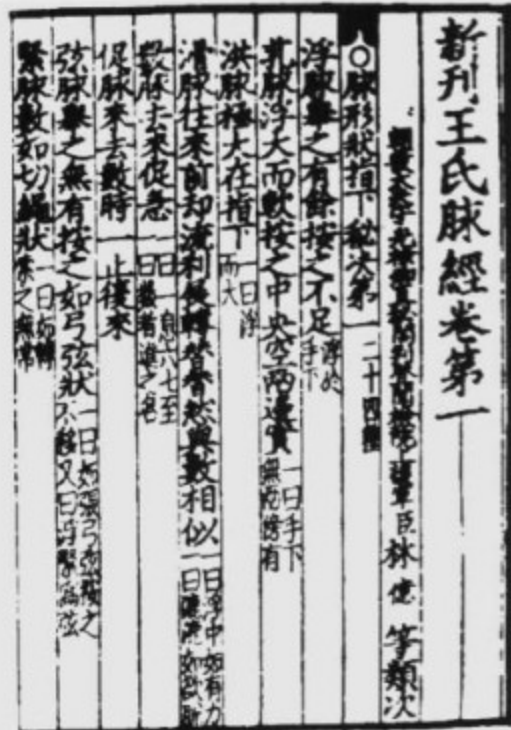 新刊王氏脉經卷第一
朝散大夫守光祿卿直秘閣判登聞檢院上護軍臣林億等類次
○脉形狀指下秘决第一二十四種
浮脉舉之有餘按之不足浮於手下
芤脉浮大而軟按之中央空兩邊實一曰手下無兩傍有
洪脉極大在指下一曰浮而大
滑脉往來前却流利展轉替替然與數相似一曰浮中如有力一曰漉漉如欲脫
數脉去來促急一曰一息六七至一曰數者進之名
促脉來去數時一止復來
弦脉舉之無有按之如弓弦狀一曰如張弓弦按之不移又曰浮緊爲弦
緊脉數如切繩狀一曰如轉索之無常